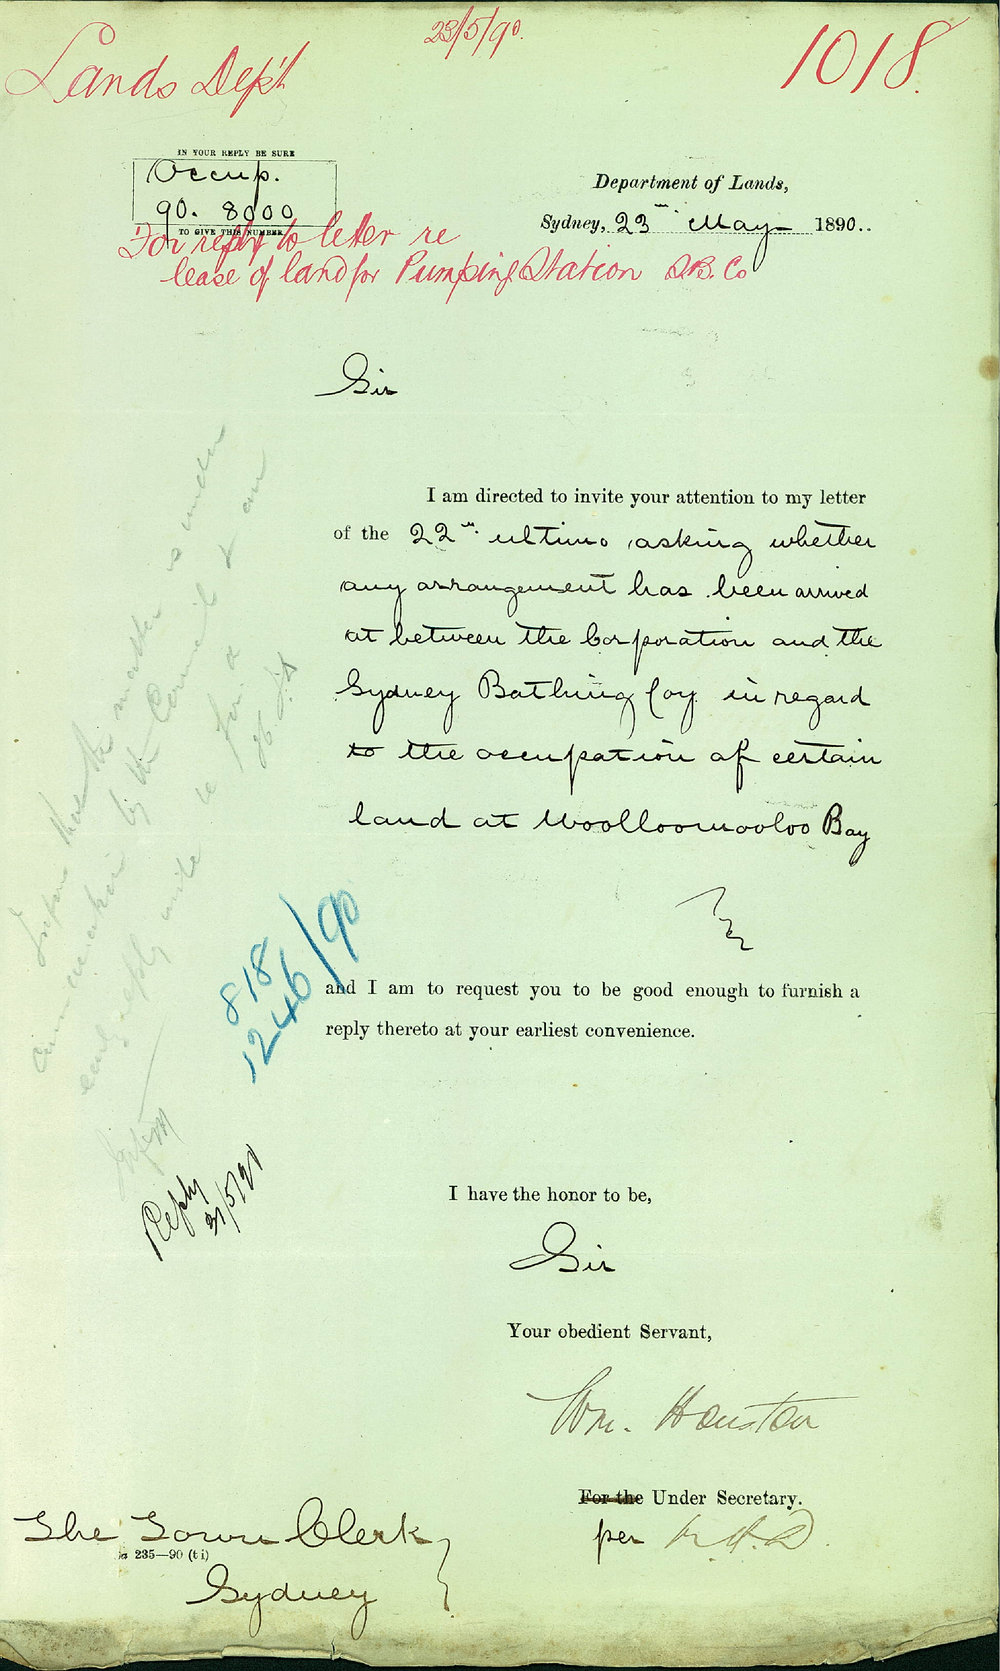 23/5/90.
Lands Dep't
1018.
IN YOUR REPLY BE SURE
Occup.
90. 8000
TO GIVE THIS NUMBER
Department of Lands,
Sydney, 23rd May 1890..
For reply to letter re
lease of land for Pumping Station S.B. Co
Sir
I am directed to invite your attention to my letter
of the 22nd ultimo, asking whether
any arrangement has been arrived
at between the Corporation and the
Sydney Bathing Coy in regard
to the occupation of certain
land at Woolloomooloo Bay
and I am to request you to be good enough to furnish a
reply thereto at your earliest convenience.
Inform that the matter is under
by the Council & an
early reply
818
1246/90
Reply
31/5/90
I have the honor to be,
Sir
Your obedient Servant,
Wm. Houston
For the Under Secretary.
per
The Town Clerk
235—90 (ti)
Sydney